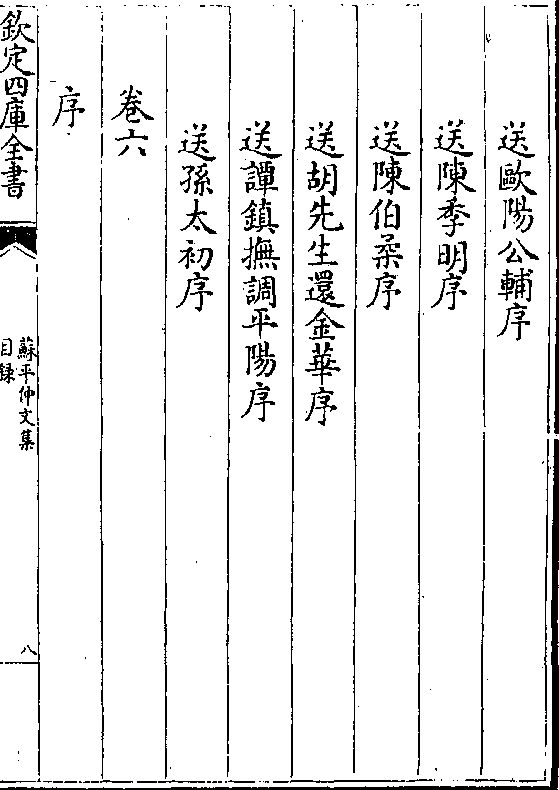 送歐陽公輔序
送陳季明序
送陳伯柔序
送胡先生還金華序
送譚鎮撫調平陽序
送孫太初序
卷六
序
欽定四庫全書
蘇平仲文集
目録
八